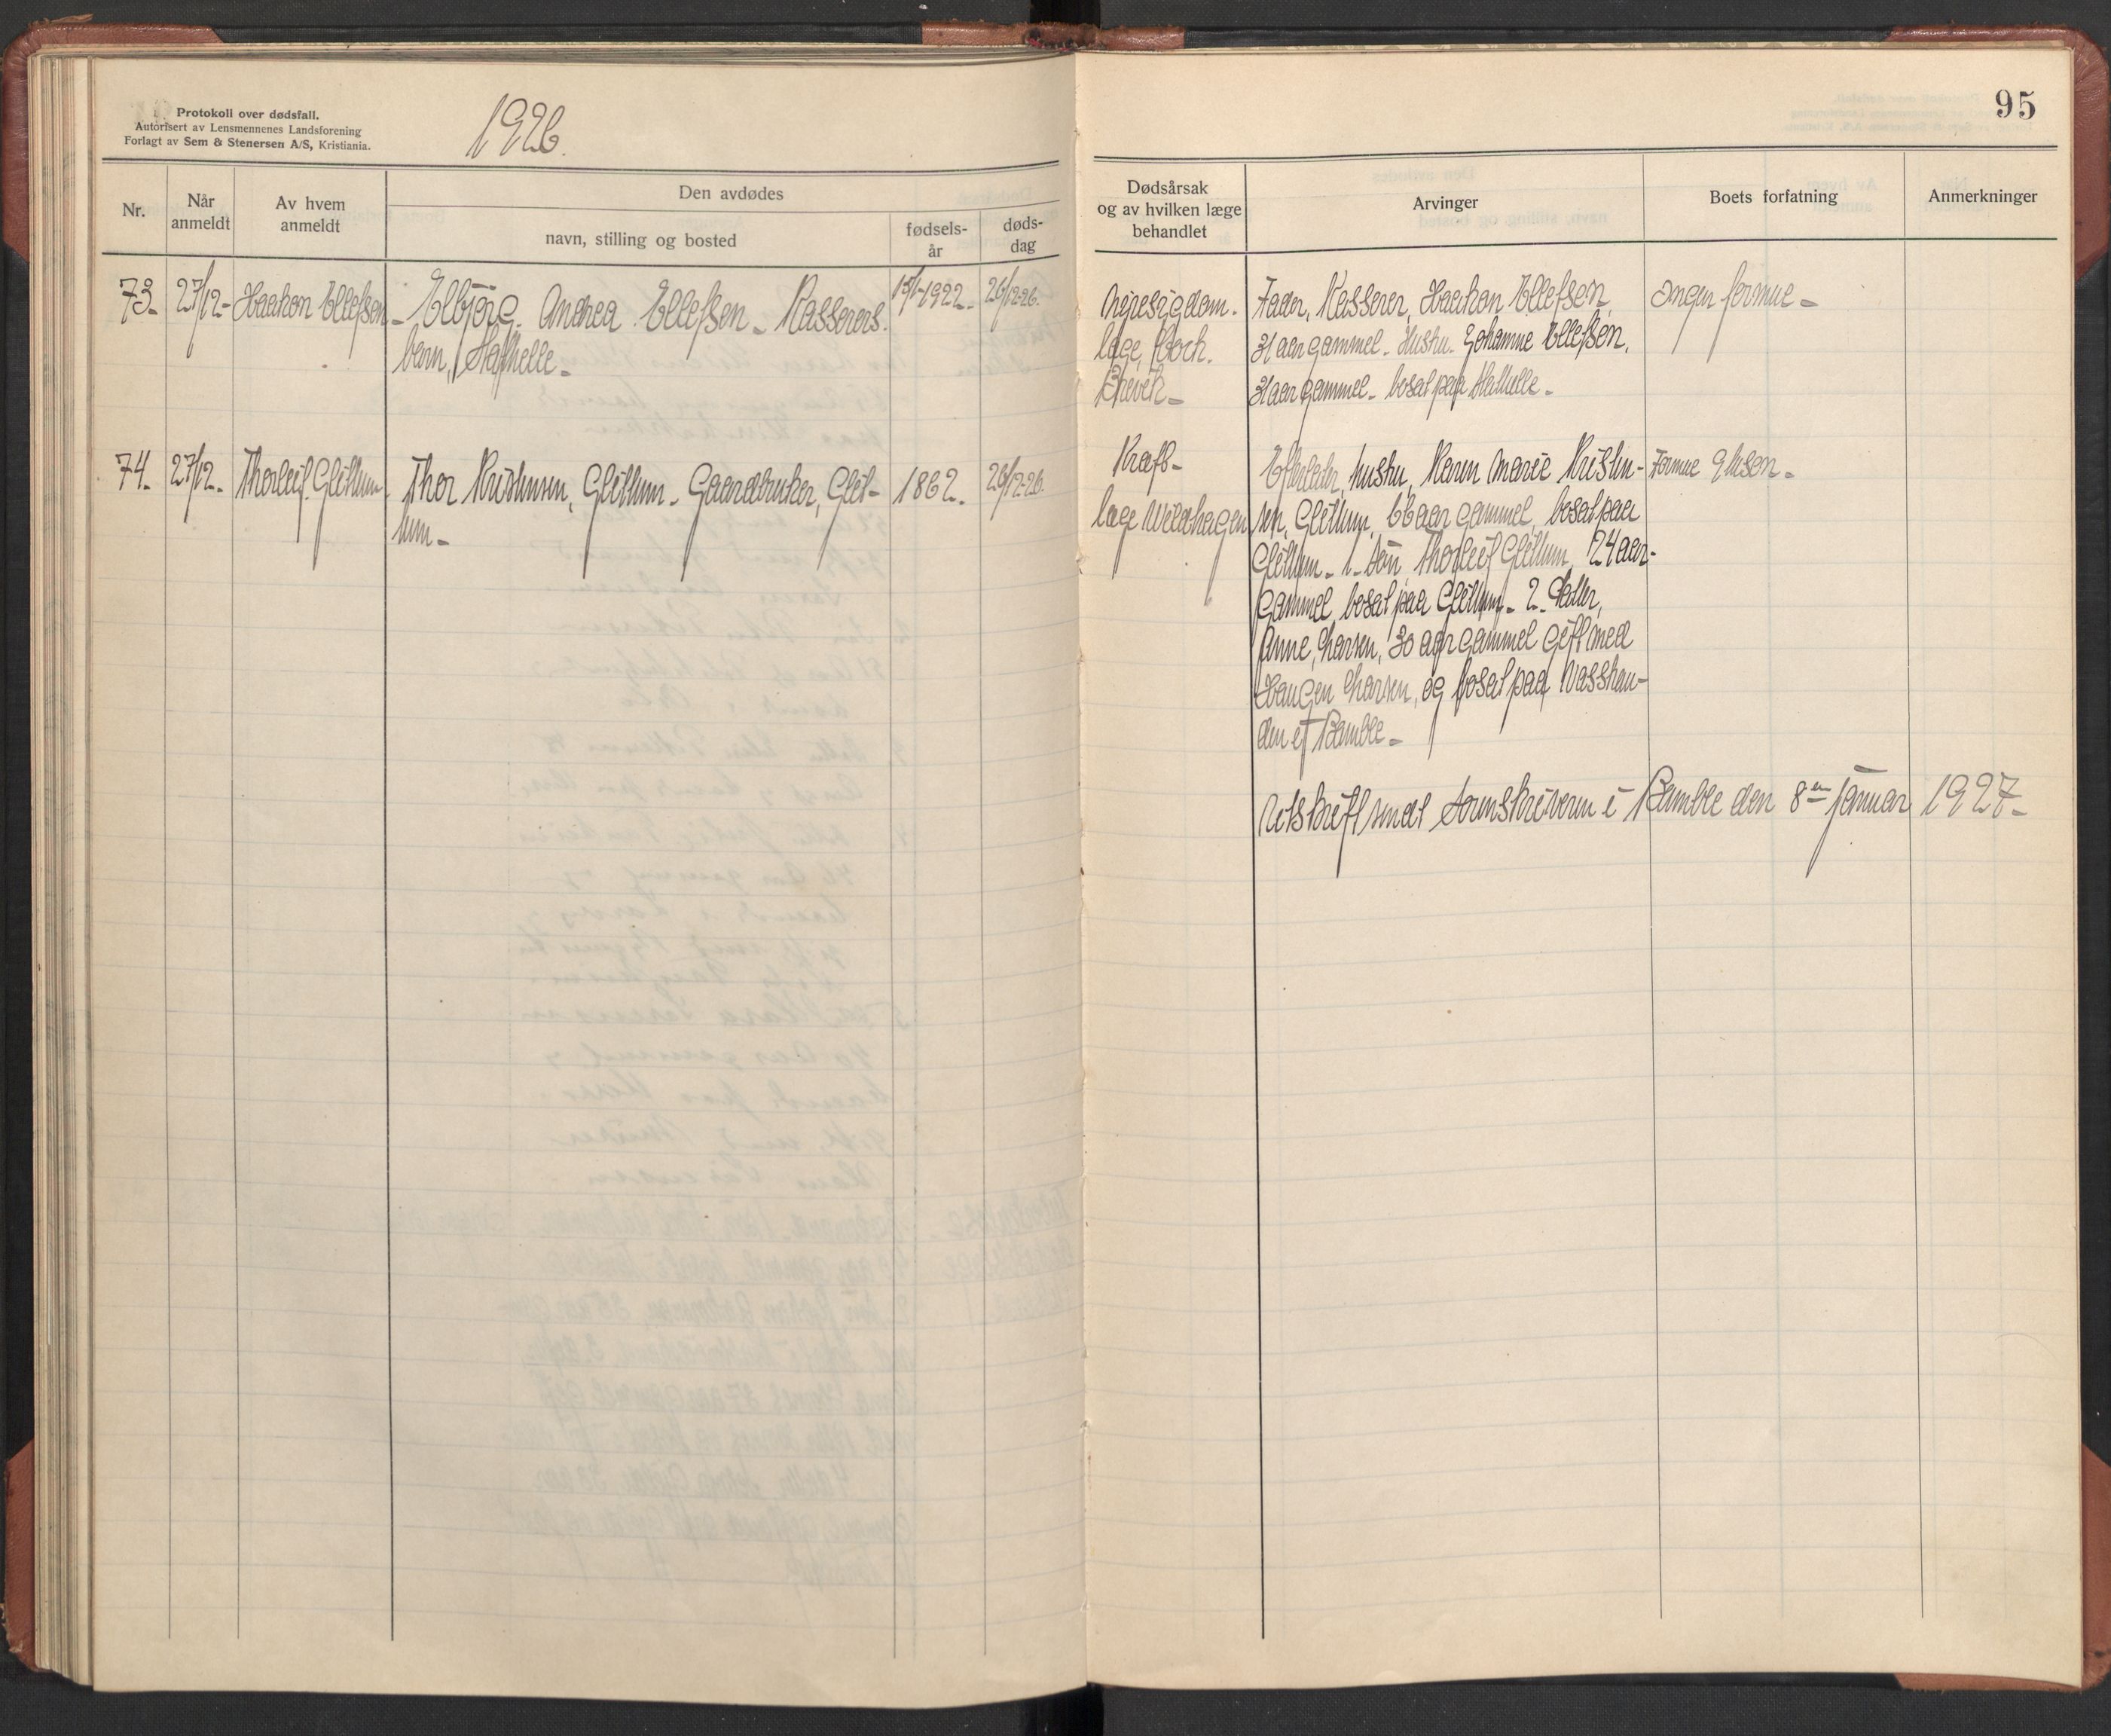 Protokoll over dødsfall.
Autorisert av Lensmennenes Landsforening
Forlagt av Sem & Stenersen A/S, Kristiania.
1926.
95
Nr.
Når anmeldt
Av hvem anmeldt
Den avdødes
navn, stilling og bosted
fødsels-år
døds-dag
Dødsårsak
og av hvilken læge
behandlet
Arvinger
Boets forfatning
Anmerkninger
73. 27/12- Haakon Ellefsen - Elbjørg Andrea Ellefsen - Kasserers 1922. 26/12-26.
barn, Stathelle -
Nyresygdom.
læge, Bock.
Brevik -
Fader, Kasserer, Haakon Ellefsen,
31 aar gammel - Hustu. Johanne Ellefsen.
31 aar gammel - bosat paa Stathelle -
Ingen formue -
74. 27/12. Thorleif Glittum. Thor Kristensen, Glittum - Gaardbruker, Glit- 1862. 26/12-26.
tum -
Kræft -
læge Weidhagen
Efterlater, hustu, Karen Marie Kristen-
sen, Glittum, 66 aar gammel, bosat paa
Glittum - 1. Søn, Thorleif Glittum, 24 aar-
gammel bosat paa Glittum - 2. Datter,
Anne, Larsen, 30 aar gammel gift med
Haugen Larsen, og bosat paa Nasshau-
den Bamble -
Formue
Utskrift sendt Sorenskriveren i Bamble den 8en Januar 1927 -